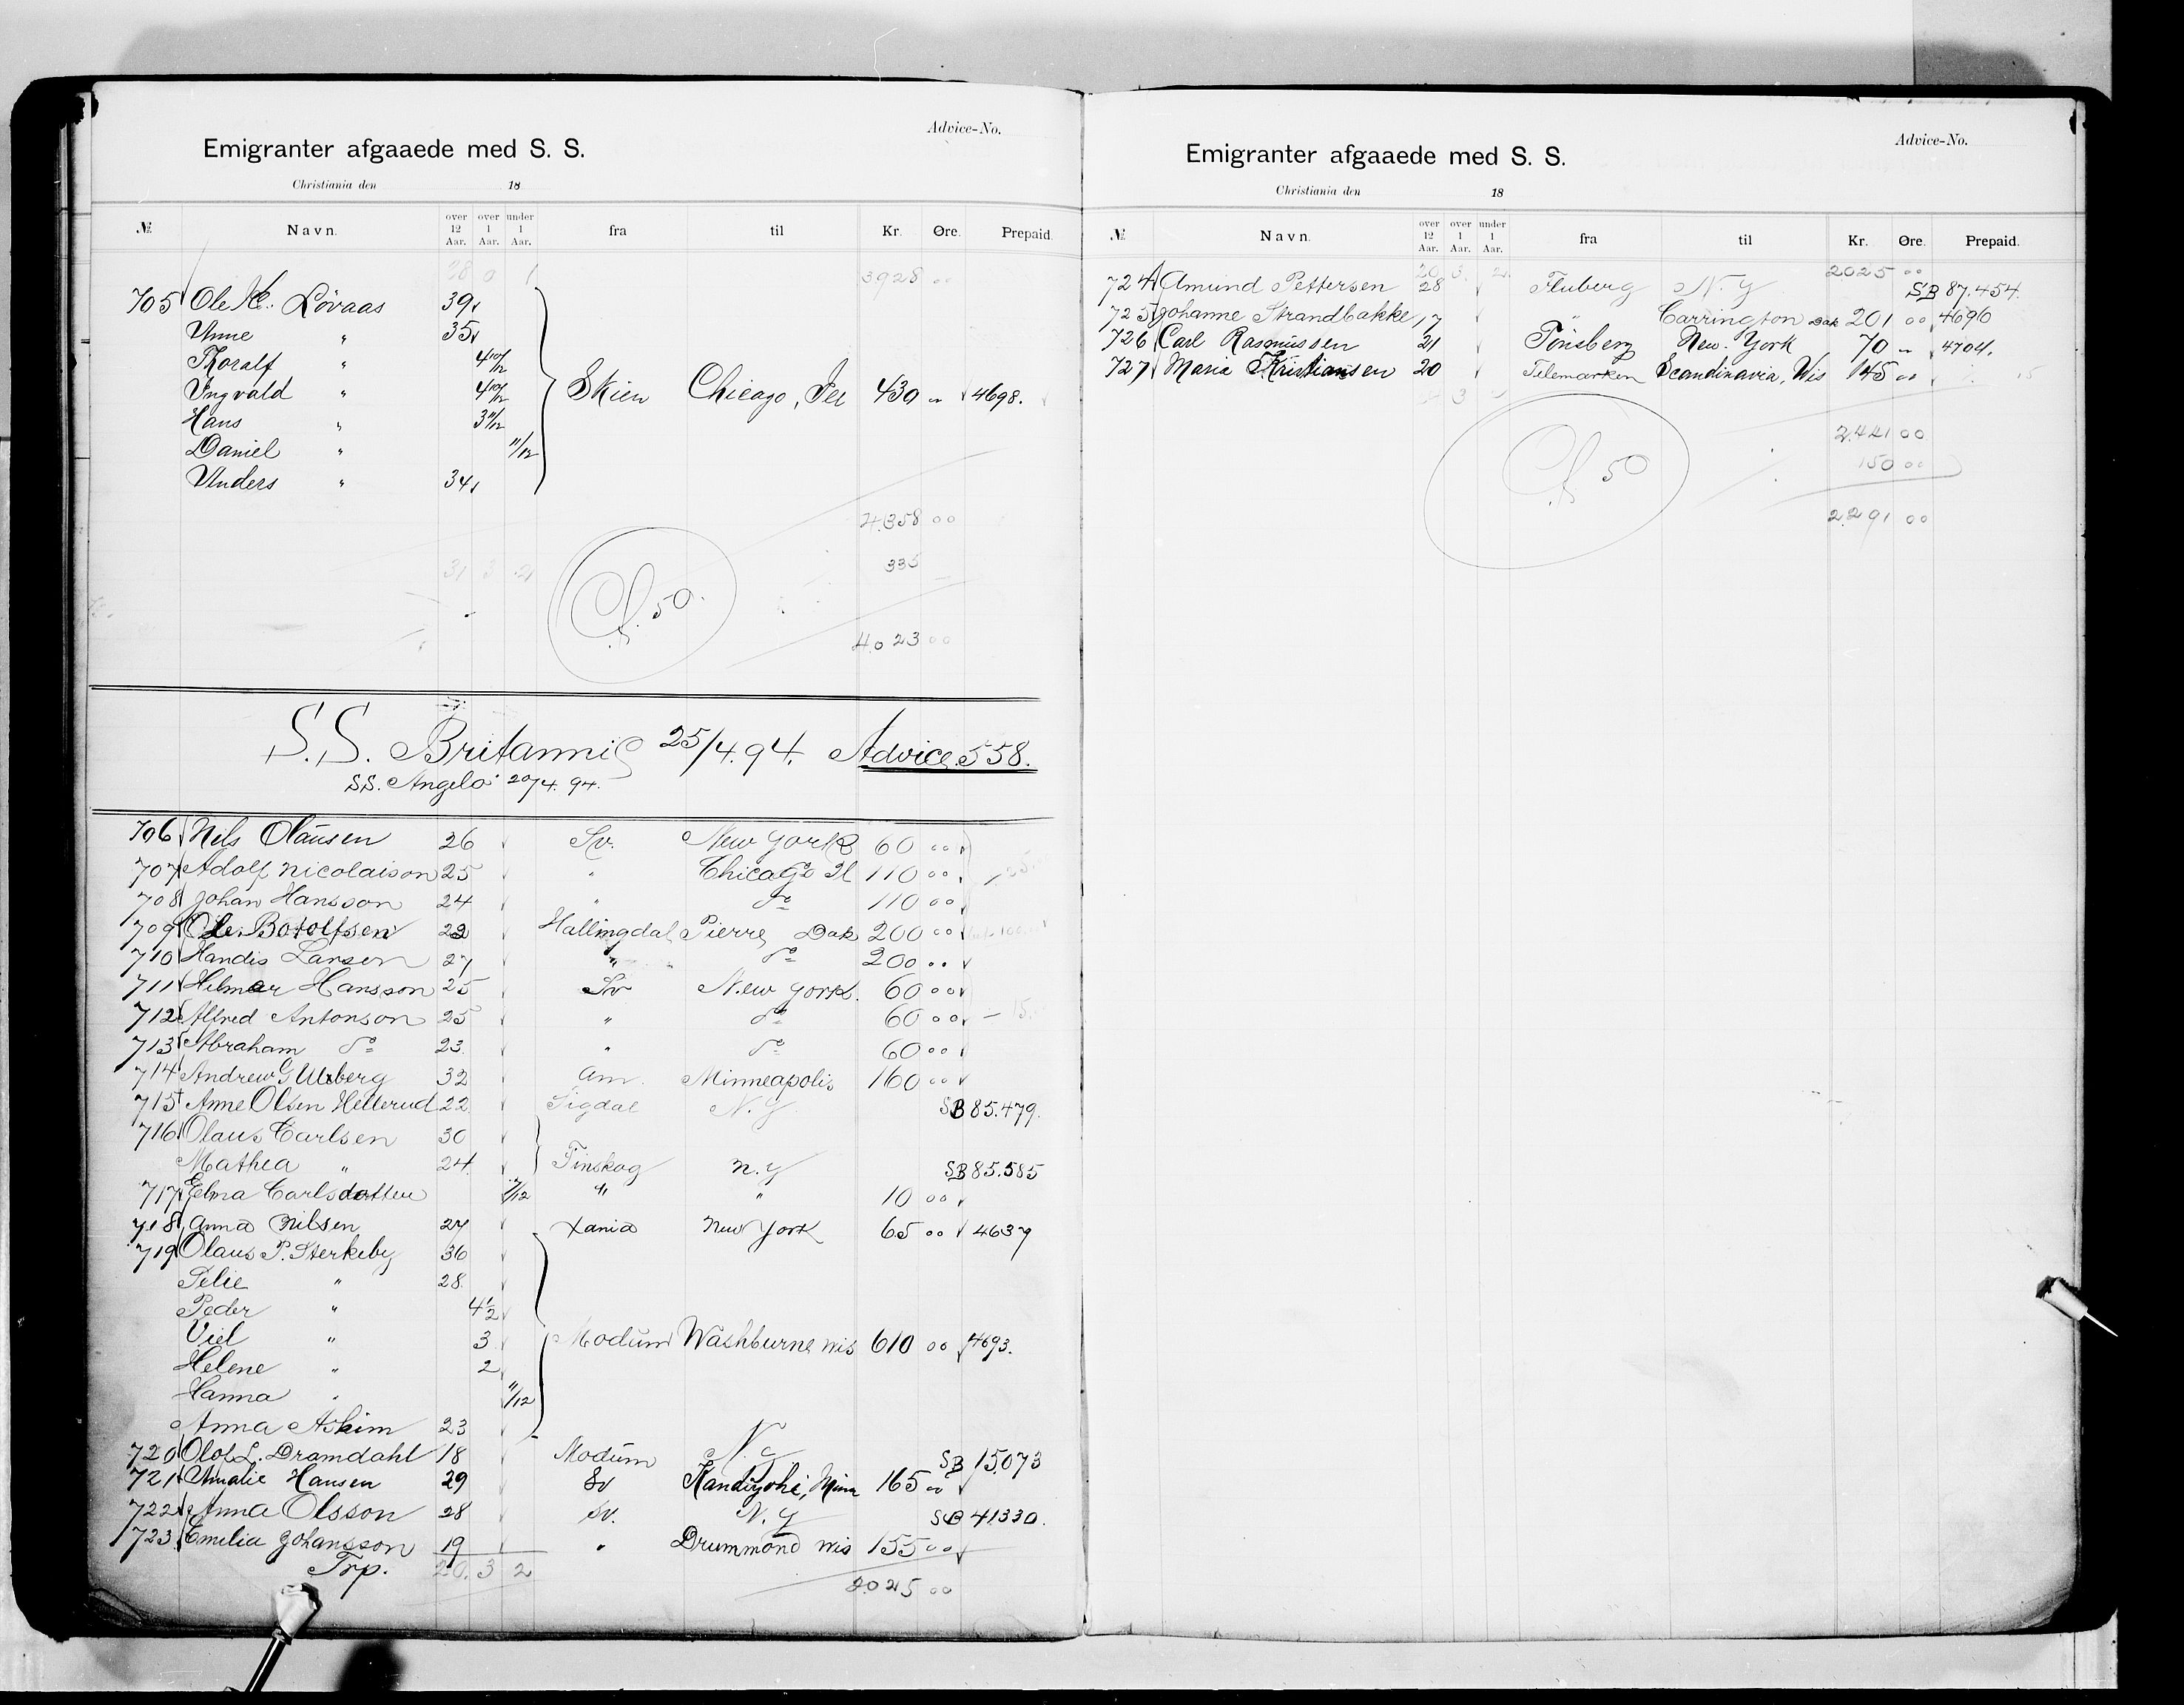 Advice-No.
Emigranter afgaaede med S. S.
Christiania den 18
№ Navn. over 12 Aar. over 1 Aar. under 1 Aar. fra til Kr. Øre. Prepaid.
28 0 1 3928 00
705 Ole K. Lövaas 39
Anne " 35
Thoralf " 4 10/12
Ingvald " 4 10/12 Skien Chicago, 430 " 4698.
Hans " 3 11/12
Daniel " 11/12
Anders " 34
4358 00
31 3 2 335
50.
4023 00
S.S. Britannic 25/4.94. Advice 558.
SS. Angelo 20/4.94.
706 Nils Olausen 26 Sv. New York 60 00
707 Adolf Nicolaison 25 " Chicago Il 110 00
708 Johan Hansson 24 " do 110 00
709 Ole Botolfsen 22 Hallingdal Pierre, Dak 200 00
710 Handis Larsen 27 " do 200 00
711 Hilmar Hansson 25 Sv New York. 60 00
712 Alfred Antonson 25 " do 60 00 15
713 Abraham do 23 " do 60 00
714 Andrew G Ulsberg 32 Am. Minneapolis 160 00
715 Anne Olsen Hellerud 22 Sigdal N.Y. SB 85.479.
716 Olaus Carlsen 30
Mathea " 24 Finskog N.Y SB 85.585
717 Elma Carlsdatter 7/12 " " 10 00
718 Anna Nilsen 27 Xania New York 65 00 4637
719 Olaus P. Sterkeby 36
Pelie " 28
Peder " 4 1/2
Viel " 3 Modum Washburne Wis 610 00 4693.
Helene " 2
Hanna " 11/12
Anna Askim 23
720 Olof L. Dramdahl 18 Modum N.Y SB 15,073
721 Amalie Hansen 29 Sv Kandiyohi, Minn 165 "
722 Anna Olsson 28 Sv. N.Y SB 41330.
723 Emilia Johansson 19 " Drummond Wis 155 00
Trp. 20. 3 2 2025 00
Advice-No.
Emigranter afgaaede med S. S.
Christiania den 18
№ Navn. over 12 Aar. over 1 Aar. under 1 Aar. fra til Kr. Øre. Prepaid.
20 3. 2. 2025 00
724 Amund Pettersen 28 Fluberg N.Y SB 87.454.
725 Johanne Strandbakke 17 " Carrington Dak 201 00 4696
726 Carl Rasmussen 21 Tönsberg New York 70 " 4704.
727 Marie Kristiansen 20 Telemarken Scandinavia, Wis 145 00
3
2.441 00
50 150 00
2291 00